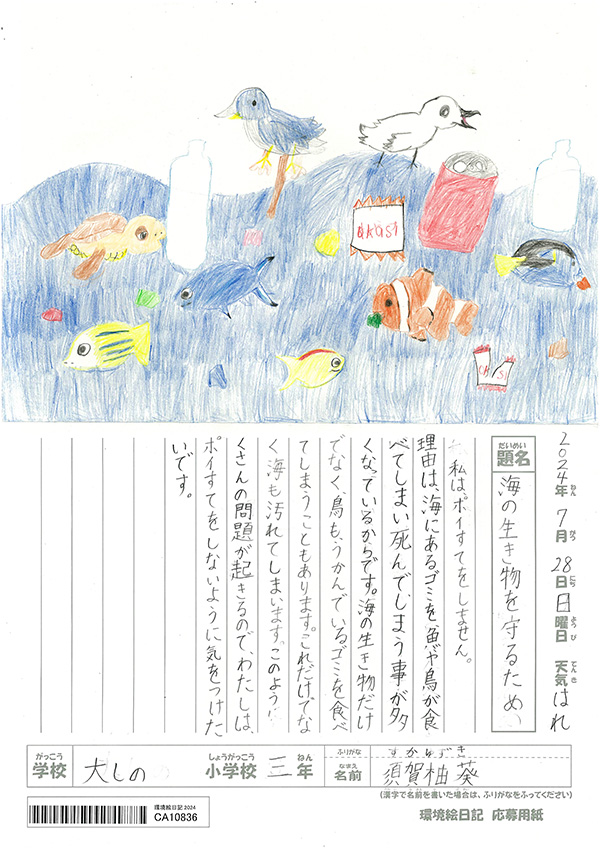 OKASI
OKASI
2024年 7月 28日 日曜日 天気 はれ
ねん がつ にち ようび てんき
だいめい
題名 海の生き物を守るため
私は、ポイすてをしません。
理由は、海にあるゴミを、魚や鳥が食
べてしまい死んでしまう事が多
くなっているからです。海の生き物だけ
でなく、鳥も、うかんでいるゴミを食べ
てしまうこともあります。これだけでな
く海も汚れてしまいます。このように
くさんの問題が起きるので、わたしは、
ポイすてをしないように気をつけた
いです。
がっこう しょうがっこう ねん
学校 大しの 小学校 三年
ふりがな すかゆずき
なまえ
名前 須賀柚葵
(漢字で名前を書いた場合は、ふりがなをふってください)
環境絵日記 2024
CA10836
環境絵日記 応募用紙